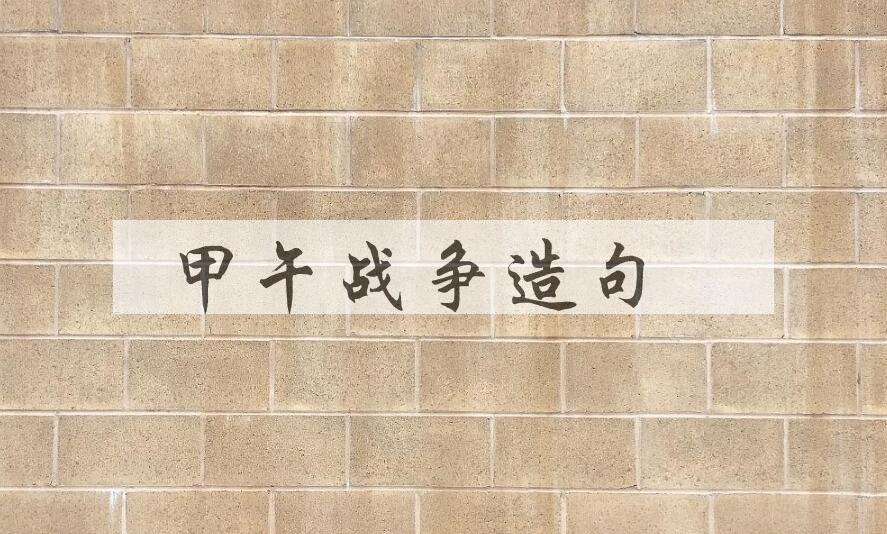 甲午战争造句